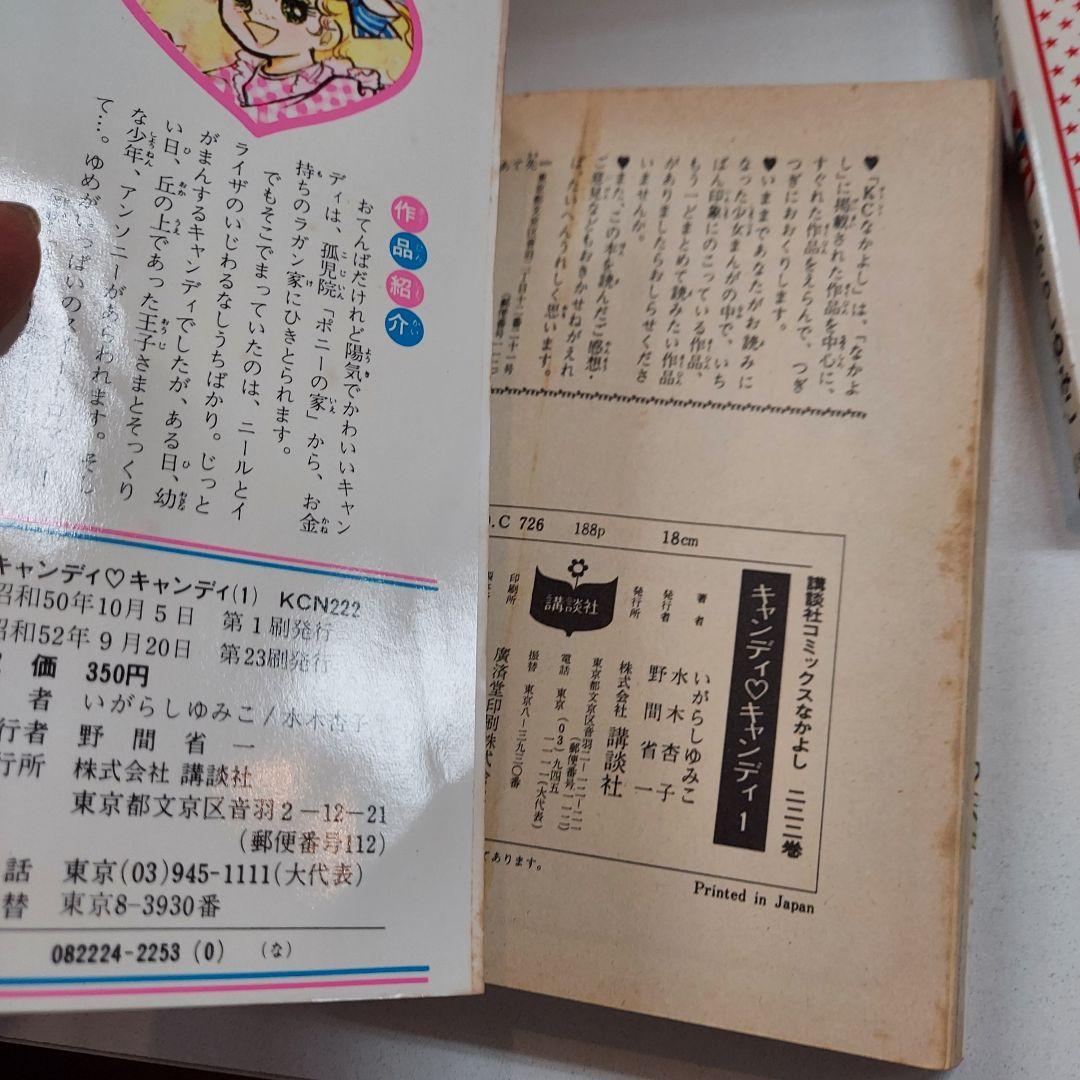 作品紹介
おてんばだけれど陽気でかわいいキャン
ディは、孤児院「ポニーの家」から、お金
持ちのラガン家にひきとられます。
でもそこでまっていたのは、ニールとイ
ライザのいじわるなしうちばかり。じっと
がまんするキャンディでしたが、ある日、幼
い日、丘の上であった王子さまとそっくり
な少年、アンソニーがあらわれます。そし
て…。ゆめがいっぱいの
キャンディ♡キャンディ(1) KCN222
昭和50年10月5日 第1刷発行
昭和52年9月20日 第23刷発行
価 350円
者 いがらしゆみこ/水木杏子
行者 野間省一
行所 株式会社 講談社
東京都文京区音羽2-12-21
(郵便番号112)
話 東京(03)945-1111(大代表)
替 東京8-3930番
082224-2253 (0) (な)
♥「KCなかよし」は、「なかよ
し」に掲載された作品を中心に、
すぐれた作品をえらんで、つぎ
つぎにおおくりします。
♥いままであなたがお読みに
なった少女まんがの中で、いち
ばん印象にのこっている作品、
もう一どまとめて読みたい作品
がありましたらおしらせくださ
いませんか。
♥また、この本を読んだご感想・
ご意見などもおきかせねがえれ
ば、たいへんうれしく思います。
東京都文京区音羽二丁目十二番二十一号
(郵便番号一一二)
.C 726 188p 18cm
講談社コミックスなかよし 二二二巻
キャンディ♡キャンディ 1
著者 いがらしゆみこ
水木杏子
発行者 野間省一
発行所 株式会社 講談社
東京都文京区音羽二-一二-二一
(郵便番号一一二)
電話 東京(03)九四五
一一一一(大代表)
振替 東京八-三九三〇番
講談社
印刷所 廣済堂印刷株式会
てあります。
Printed in Japan